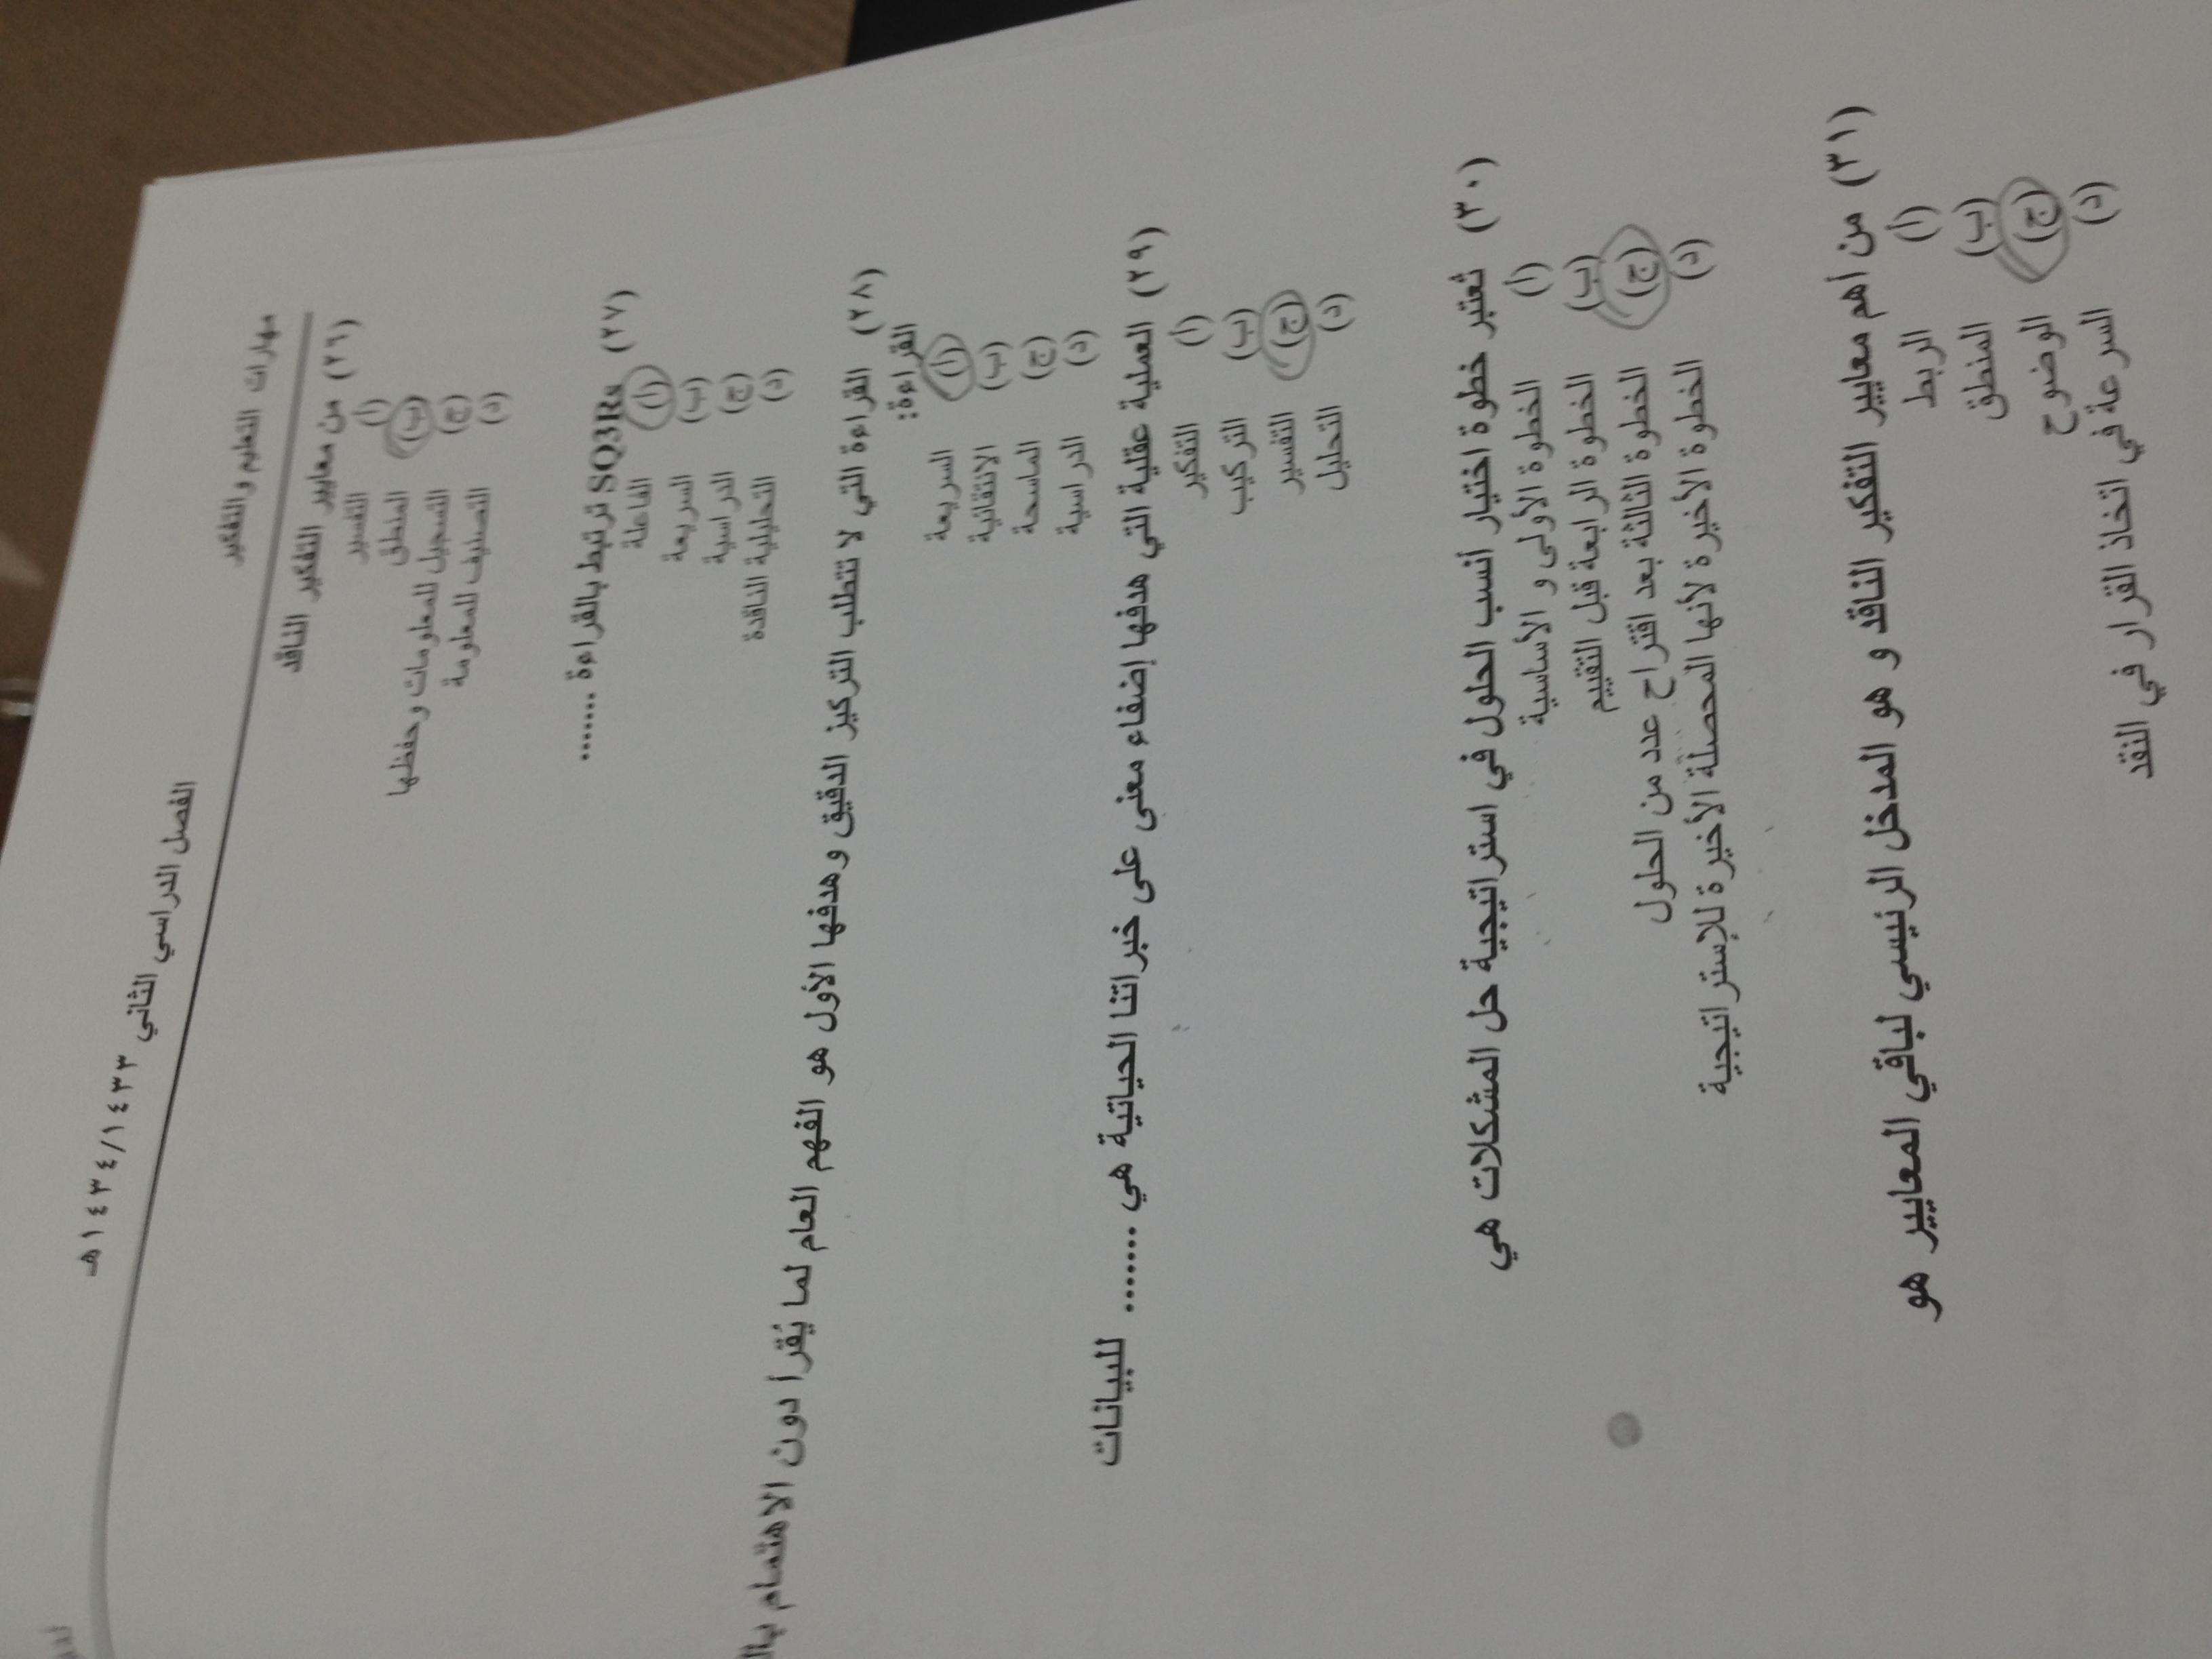 مهارات التعليم والتفكير
الفصل الدراسي الثاني ١٤٣٤/١٤٣٣هـ
(٢٦) من معايير التفكير الناقد
(أ) التفسير
(ب) المنطق
(ج) التسجيل للمعلومات وحفظها
(د) التصنيف للمعلومة
(٢٧) SQ3Rs ترتبط بالقراءة .......
(أ) الفاعلة
(ب) السريعة
(ج) الدراسية
(د) التحليلية الناقدة
(٢٨) القراءة التي لا تتطلب التركيز الدقيق وهدفها الأول هو الفهم العام لما يُقرأ دون الاهتمام
القراءة:
(أ) السريعة
(ب) الانتقائية
(ج) الماسحة
(د) الدراسية
(٢٩) العملية عقلية التي هدفها إضفاء معنى على خبراتنا الحياتية هي ....... للبيانات
(أ) التفكير
(ب) التركيب
(ج) التفسير
(د) التحليل
(٣٠) تُعتبر خطوة اختيار أنسب الحلول في استراتيجية حل المشكلات هي
(أ) الخطوة الأولى و الأساسية
(ب) الخطوة الرابعة قبل التقييم
(ج) الخطوة الثالثة بعد اقتراح عدد من الحلول
(د) الخطوة الأخيرة لأنها المحصلة الأخيرة للإستراتيجية
(٣١) من أهم معايير التفكير الناقد و هو المدخل الرئيسي لباقي المعايير هو
(أ) الربط
(ب) المنطق
(ج) الوضوح
(د) السرعة في اتخاذ القرار في النقد